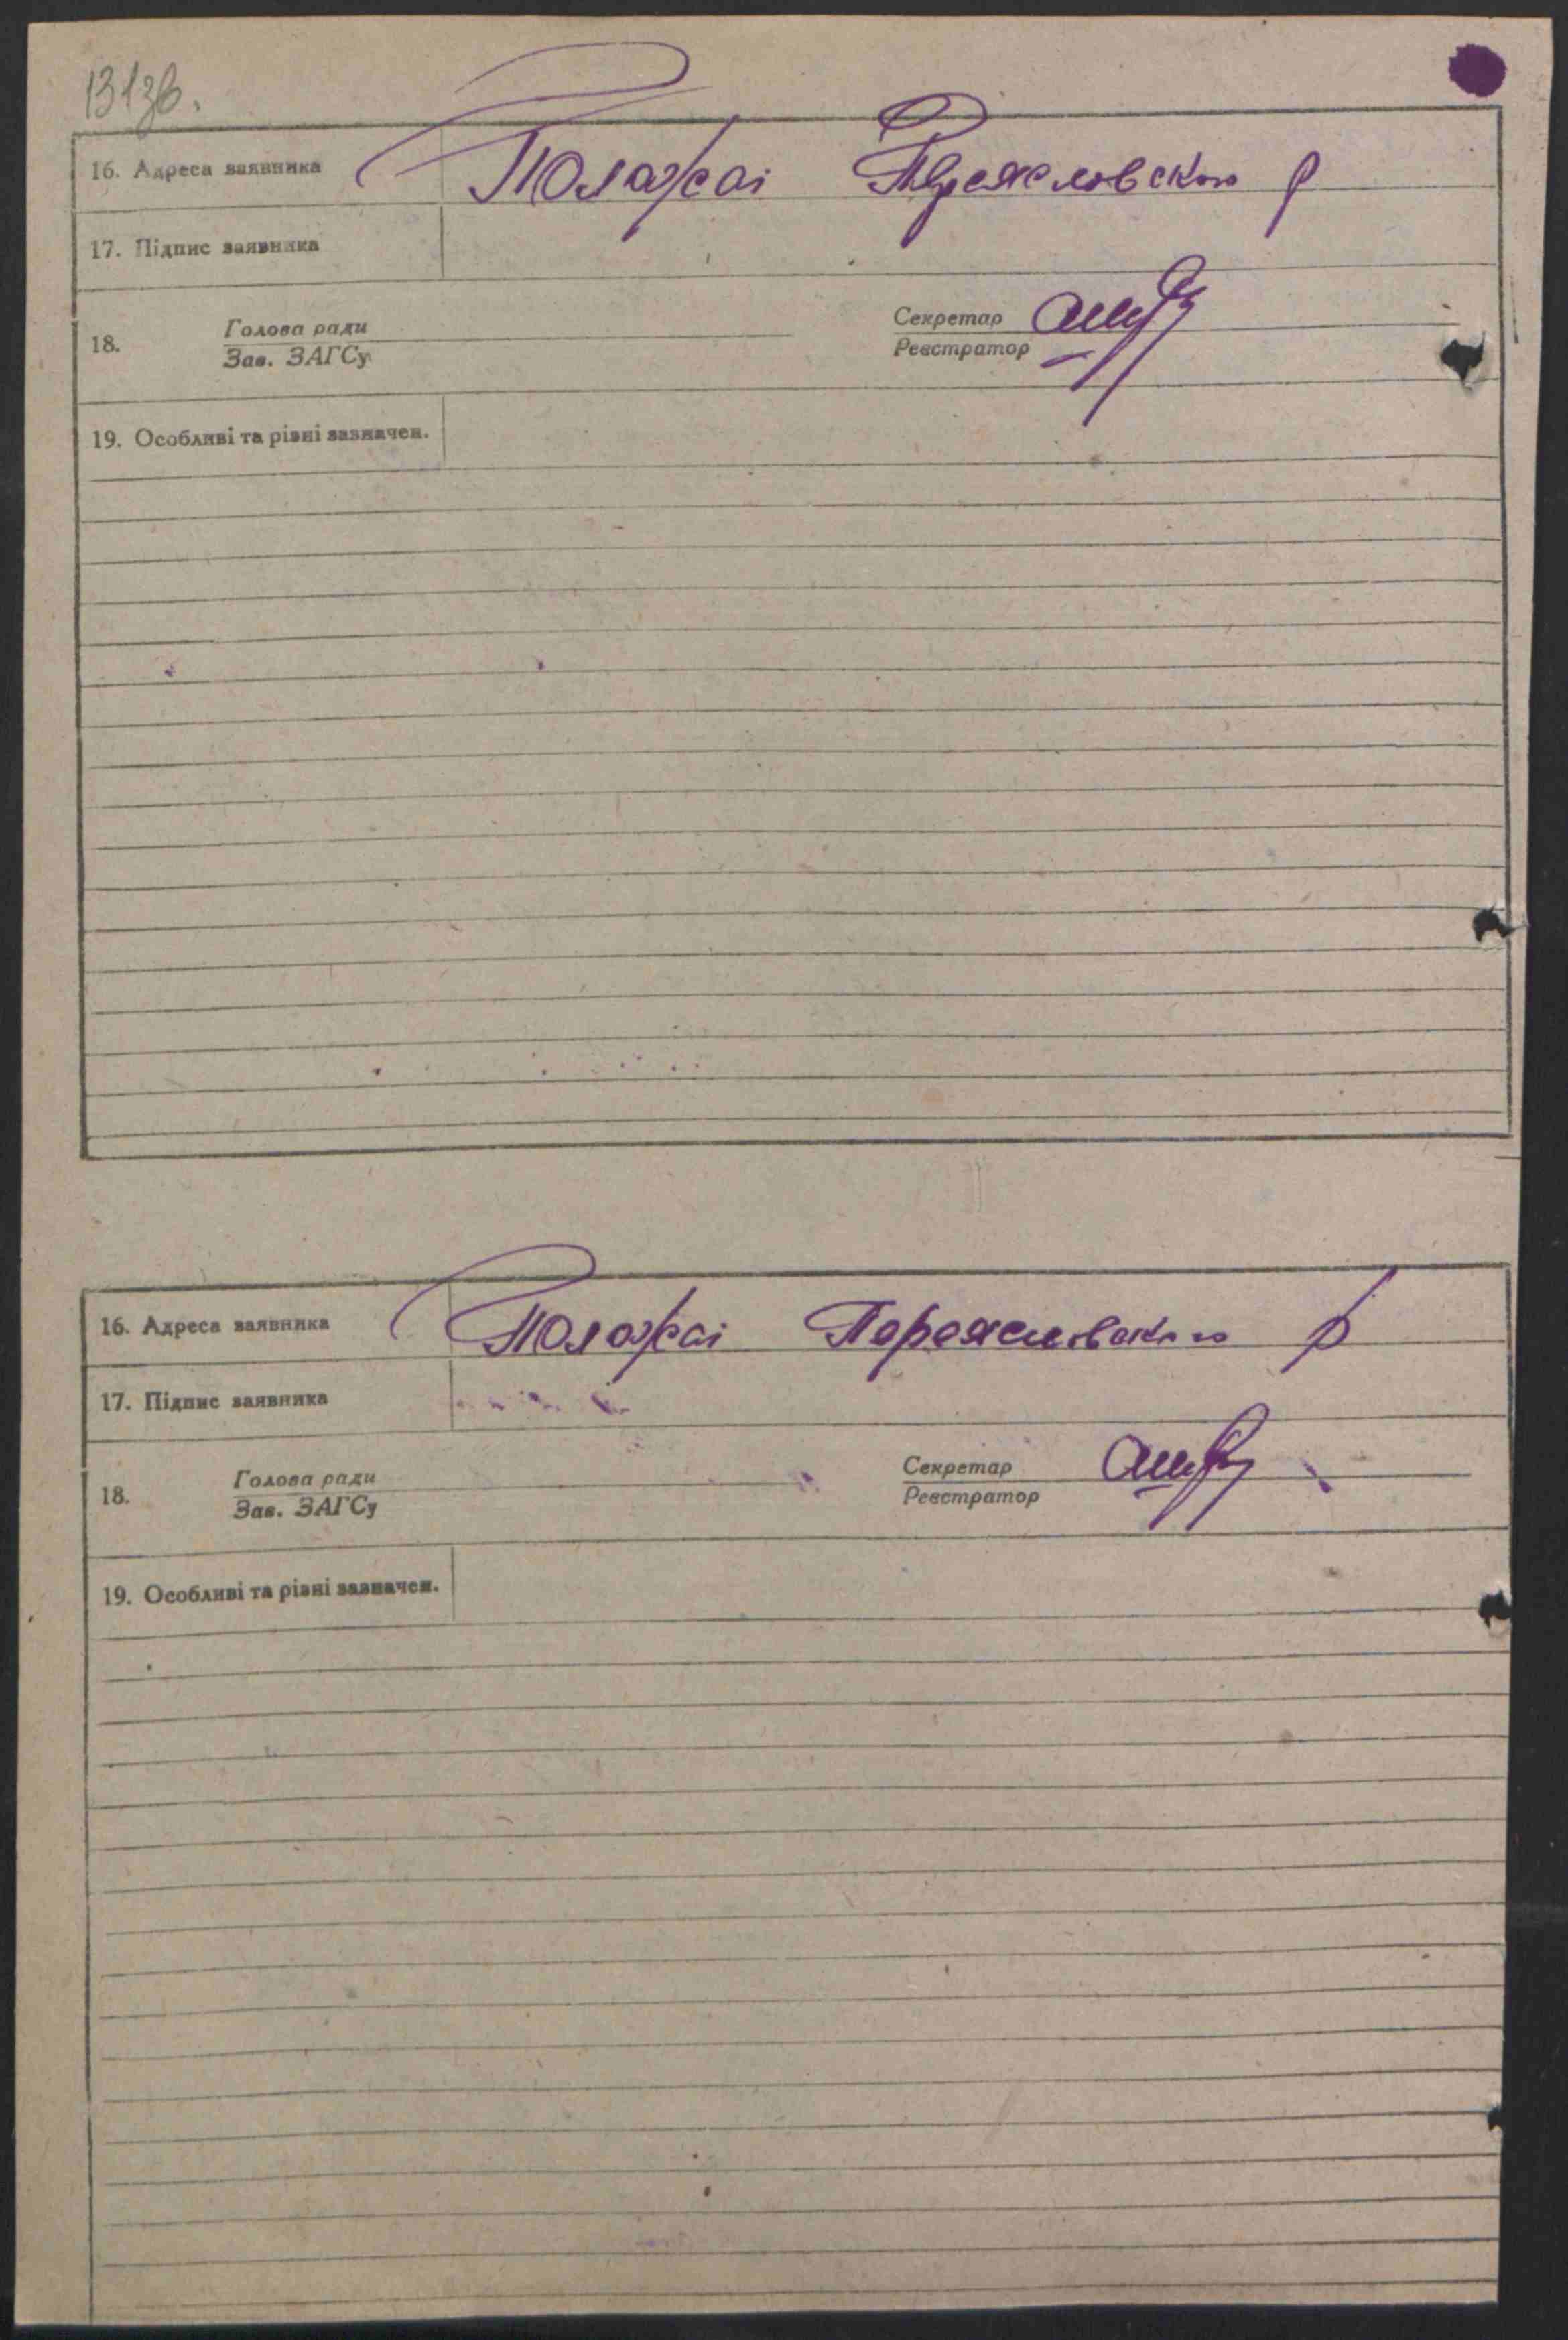 131зв.
16. Адреса заявника Положаі Переясловского р
17. Підпис заявника
18. Голова ради Секретар
Зав. ЗАГСу Реєстратор
19. Особливі та різні зазначен.
16. Адреса заявника Положаі Переясловского р
17. Підпис заявника
18. Голова ради Секретар
Зав. ЗАГСу Реєстратор
19. Особливі та різні зазначен.